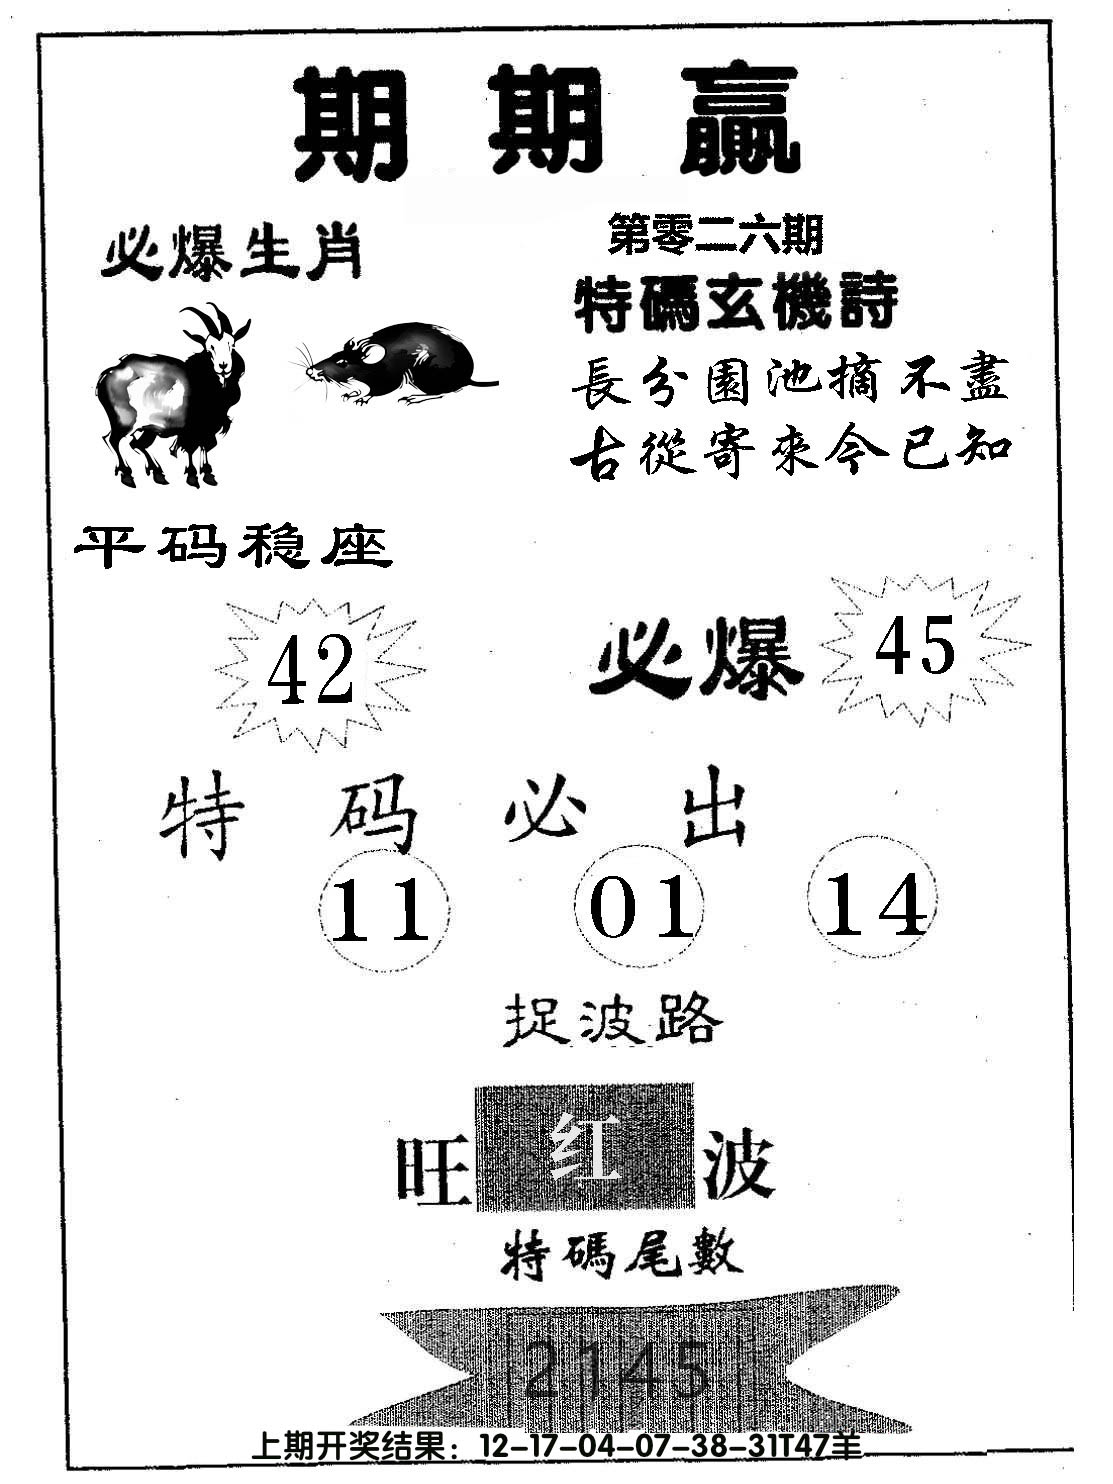 期期赢
必爆生肖
第零二六期
特碼玄機詩
長分園池摘不盡
古從寄來今已知
平码稳座
42
必爆 45
特码必出
11 01 14
捉波路
旺 红 波
特碼尾數
2145
上期开奖结果：12-17-04-07-38-31T47羊